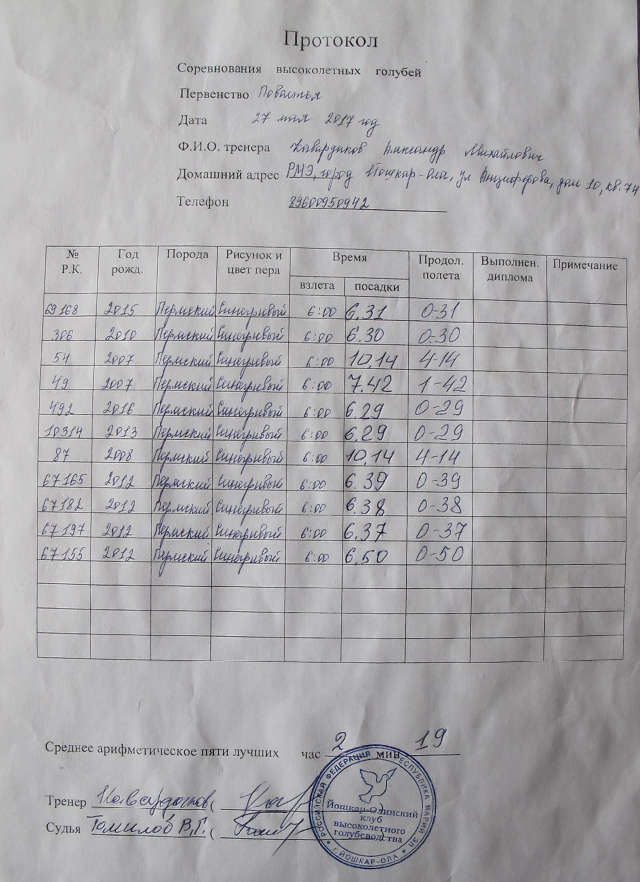 Протокол
Соревнования высоколетных голубей
Первенство Поволжья
Дата 27 мая 2017 год
Ф.И.О. тренера Кавардаков Александр Михайлович
Домашний адрес РМЭ, город Йошкар-Ола, ул Анциферова, дом 10, кв. 74
Телефон 89600950942
№ Р.К. Год рожд. Порода Рисунок и цвет пера Время Продол. полета Выполнен. диплома Примечание
взлета посадки
69168 2015 Пермский Синегривый 6:00 6.31 0-31
306 2010 Пермский Синегривый 6:00 6.30 0-30
54 2007 Пермский Синегривый 6:00 10,14 4-14
49 2007 Пермский Синегривый 6:00 7.42 1-42
492 2016 Пермский Синегривый 6:00 6.29 0-29
10314 2013 Пермский Синегривый 6:00 6.29 0-29
87 2008 Пермский Синегривый 6:00 10,14 4-14
67165 2012 Пермский Синегривый 6:00 6.39 0-39
67182 2012 Пермский Синегривый 6:00 6.38 0-38
67197 2012 Пермский Синегривый 6:00 6.37 0-37
67155 2012 Пермский Синегривый 6:00 6.50 0-50
Среднее арифметическое пяти лучших час 2 мин 19
Тренер Кавардаков (
Судья Томилов В.Г. (
РОССИЙСКАЯ ФЕДЕРАЦИЯ РЕСПУБЛИКА МАРИЙ ЭЛ
Йошкар-Олинский
клуб
высоколетного
голубеводства
Г. ЙОШКАР-ОЛА